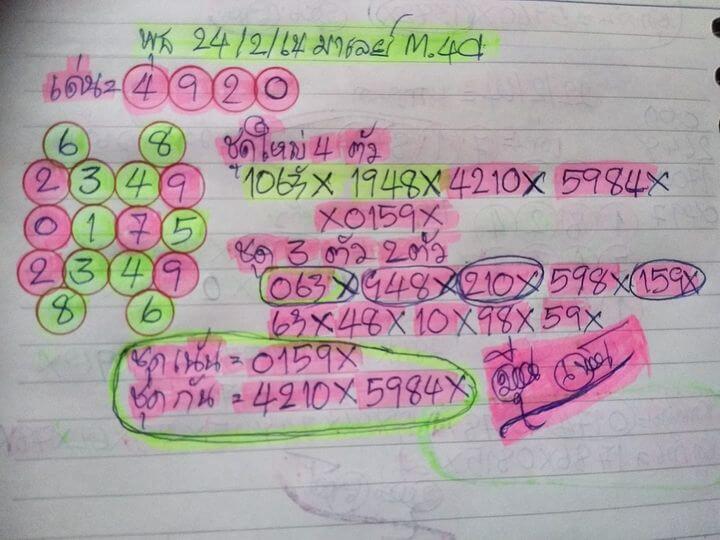 พุธ 24/2/64 มาเลย์ M.4D
เด่น= 4 9 2 0
6 8
2 3 4 9
0 1 7 5
2 3 4 9
8 6
ชุดใหม่ 4 ตัว
1063X 1948X 4210X 5984X
X0159X
ชุด 3 ตัว 2ตัว
063X 948X 210X 598X 159X
63X48X10X98X59X
ชุดเน้น = 0159X
ชุดกัน = 4210X 5984X